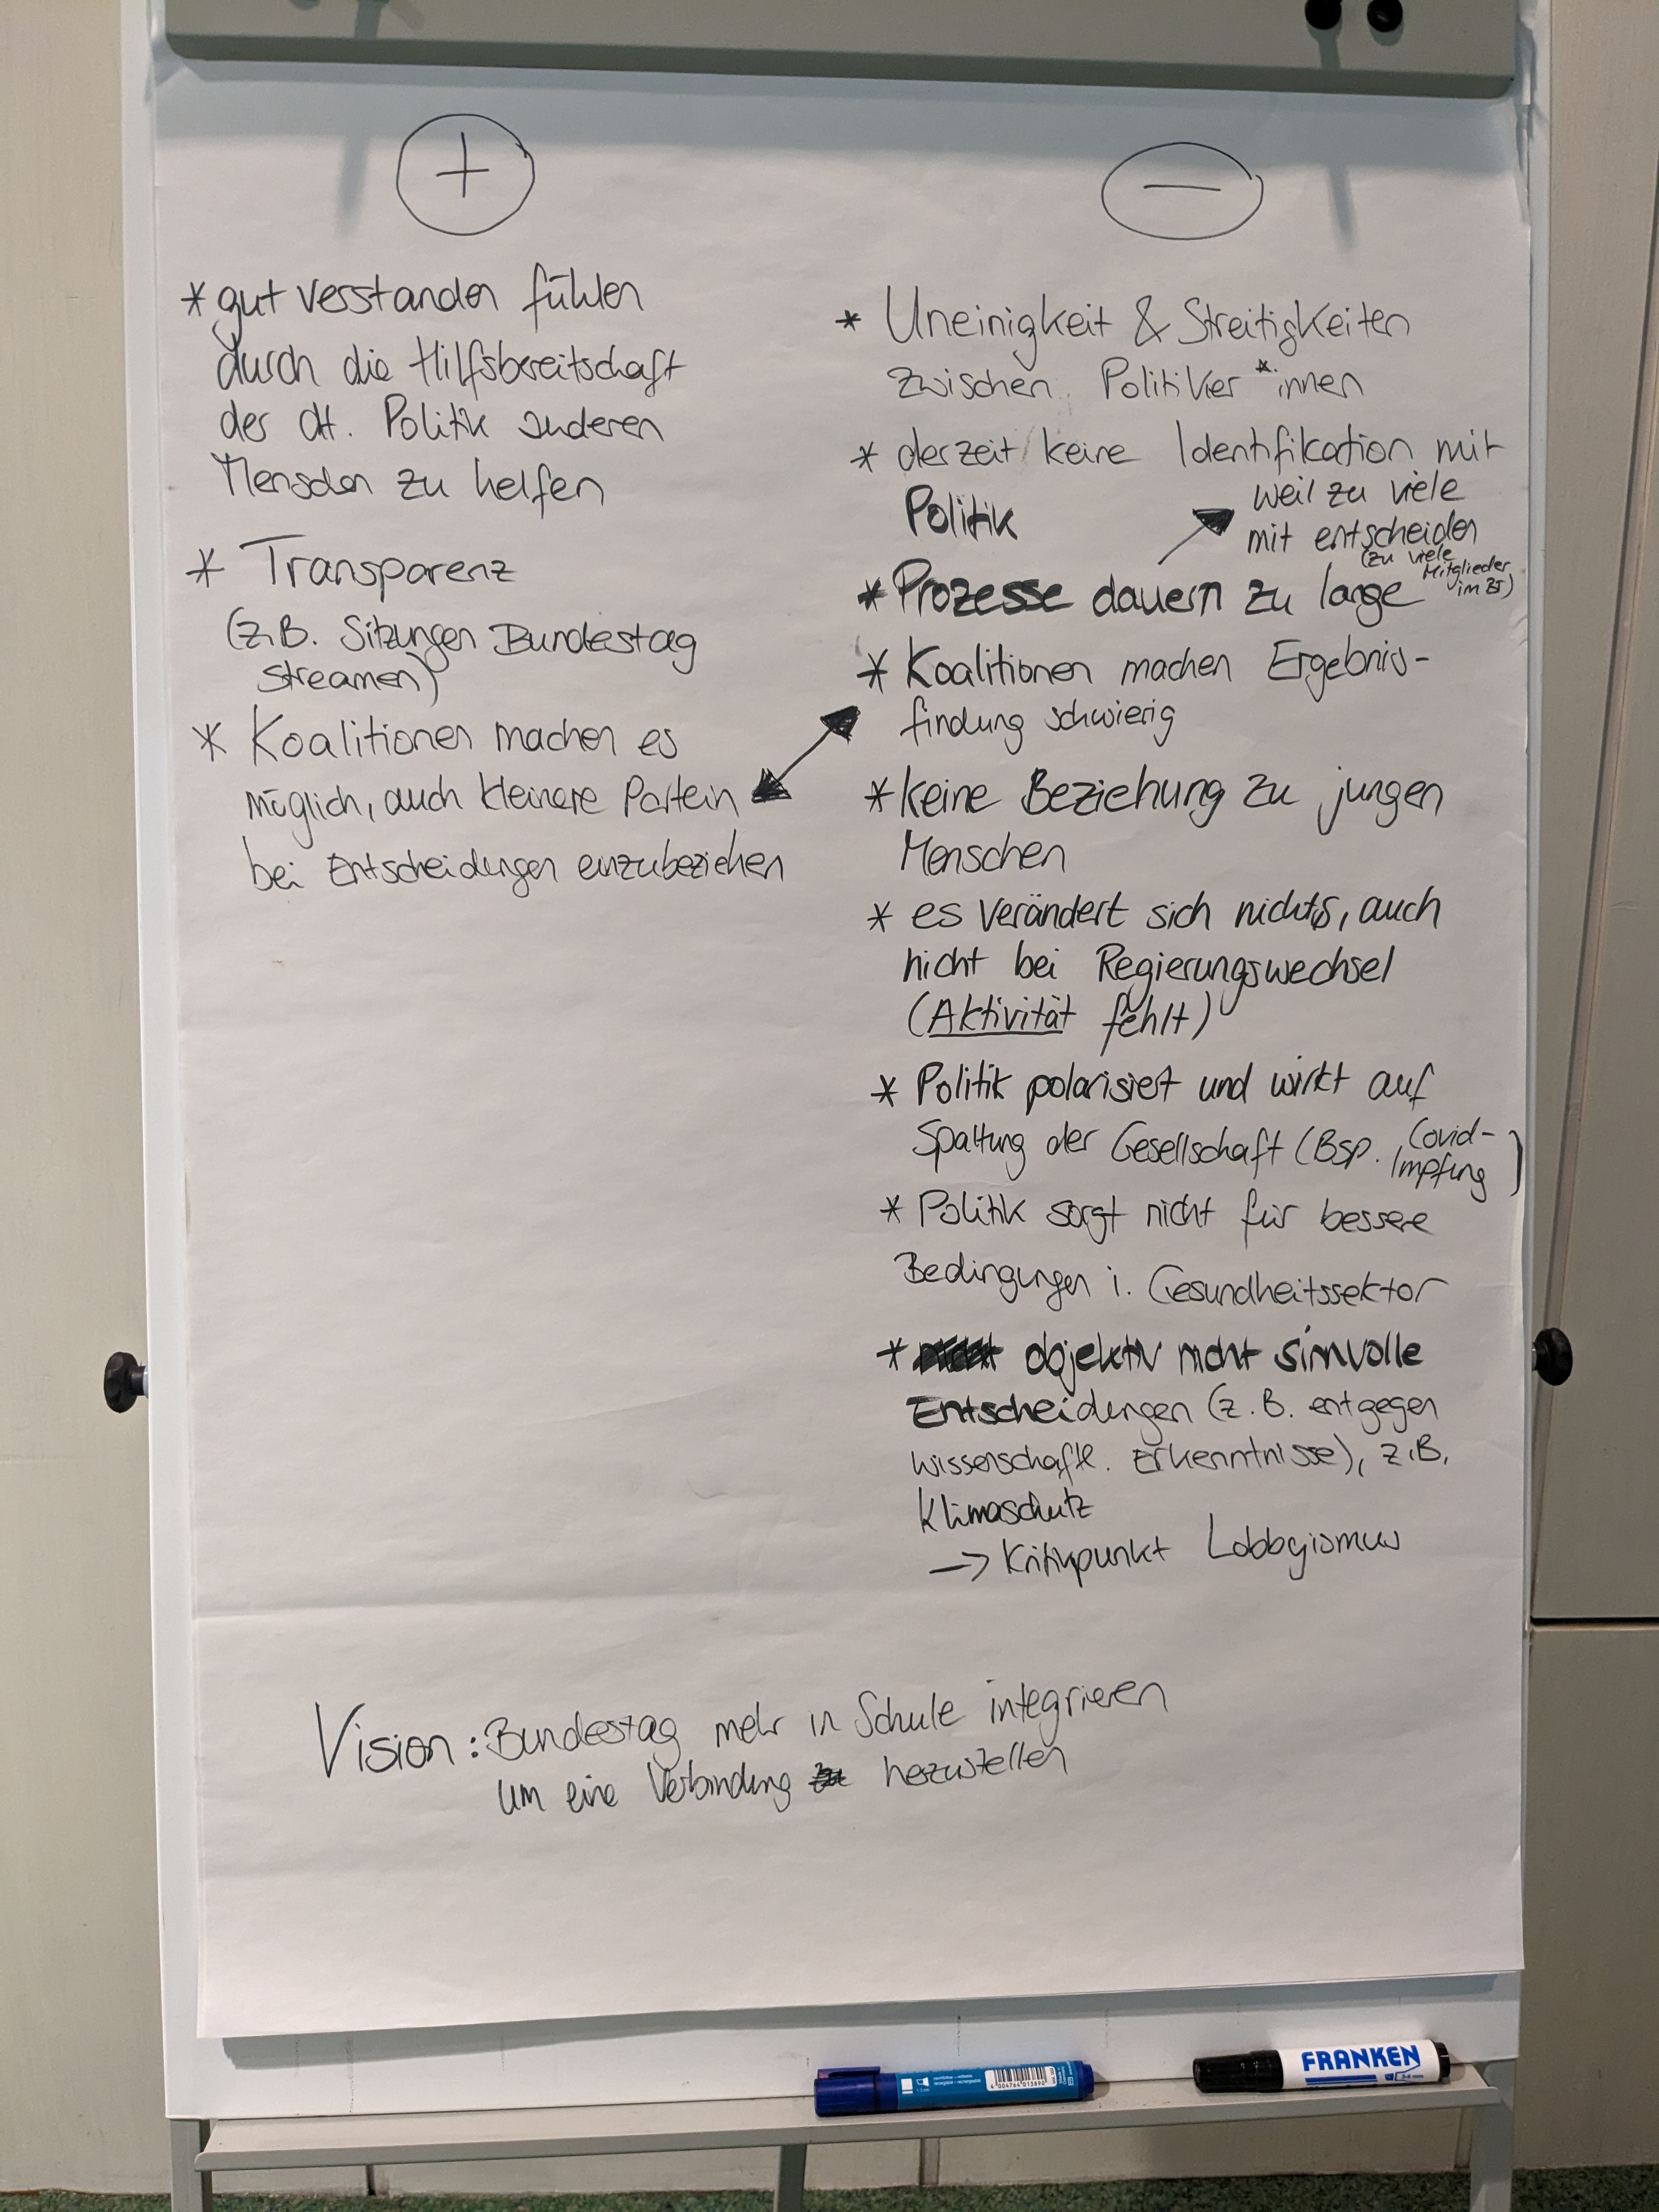 +
* gut verstanden fühlen
durch die Hilfsbereitschaft
der dt. Politik anderen
Menschen zu helfen
* Transparenz
(z.B. Sitzungen Bundestag
streamen)
* Koalitionen machen es
möglich, auch kleinere Partein
bei Entscheidungen einzubeziehen
−
* Uneinigkeit & Streitigkeiten
zwischen Politiker*innen
* derzeit keine Identifikation mit
Politik
weil zu viele
mit entscheiden
(zu viele
Mitglieder
im BT)
* Prozesse dauern zu lange
* Koalitionen machen Ergebnis-
findung schwierig
* keine Beziehung zu jungen
Menschen
* es verändert sich nichts, auch
nicht bei Regierungswechsel
(Aktivität fehlt)
* Politik polarisiert und wirkt auf
Spaltung der Gesellschaft (Bsp. Covid-
Impfung)
* Politik sorgt nicht für bessere
Bedingungen i. Gesundheitssektor
* objektiv nicht sinnvolle
Entscheidungen (z.B. entgegen
wissenschaftl. Erkenntnisse), z.B.
Klimaschutz
→ Kritikpunkt Lobbyismus
Vision: Bundestag mehr in Schule integrieren
um eine Verbindung herzustellen
FRANKEN